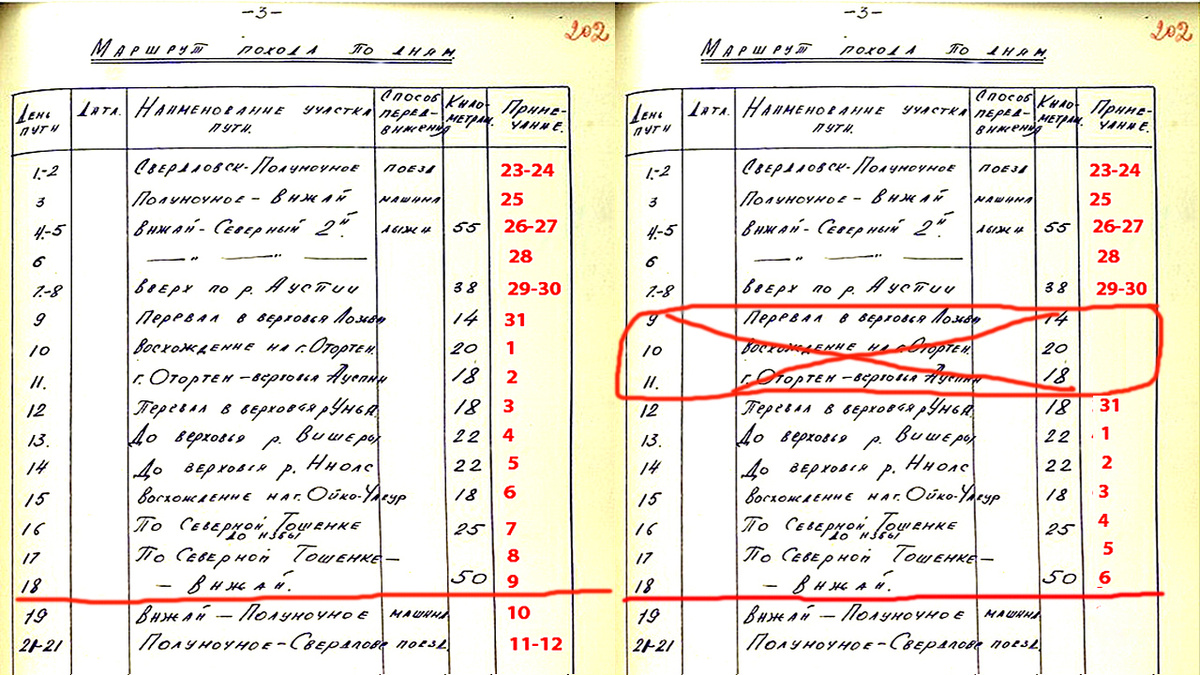 -3-
202
Маршрут похода по дням.
День пути Дата. Наименование участка пути. Способ передвижения Километраж. Примечание.
1.-2 Свердловск-Полуночное поезд 23-24
3 Полуночное - Вижай машина 25
4.-5 Вижай-Северный 2й. лыжи 55 26-27
6 — " — " — 28
7.-8 Вверх по р. Ауспии 38 29-30
9 Перевал в верховья Лозьвы 14 31
10 Восхождение на г. Отортен. 20 1
11. г. Отортен - верховья Ауспии 18 2
12 Перевал в верховья р. Унья 18 3
13. До верховья р. Вишеры 22 4
14 До верховья р. Ниолс 22 5
15 Восхождение на г. Ойко-Чакур 18 6
16 По Северной Тошенке до избы 25 7
17 По Северной Тошенке — 8
18 — Вижай. 50 9
19 Вижай — Полуночное машина 10
21-21 Полуночное-Свердлове поезд. 11-12
-3-
202
Маршрут похода по дням.
День пути Дата. Наименование участка пути. Способ передвижения Километраж. Примечание.
1.-2 Свердловск-Полуночное поезд 23-24
3 Полуночное - Вижай машина 25
4.-5 Вижай-Северный 2й. лыжи 55 26-27
6 — " — " — 28
7.-8 Вверх по р. Ауспии 38 29-30
9 Перевал в верховья Лозьвы 14
10 Восхождение на г. Отортен. 20
11. г. Отортен - верховья Ауспии 18
12 Перевал в верховья р. Унья 18 31
13. До верховья р. Вишеры 22 1
14 До верховья р. Ниолс 22 2
15 Восхождение на г. Ойко-Чакур 18 3
16 По Северной Тошенке до избы 25 4
17 По Северной Тошенке — 5
18 — Вижай. 50 6
19 Вижай — Полуночное машина
21-21 Полуночное-Свердлове поезд.